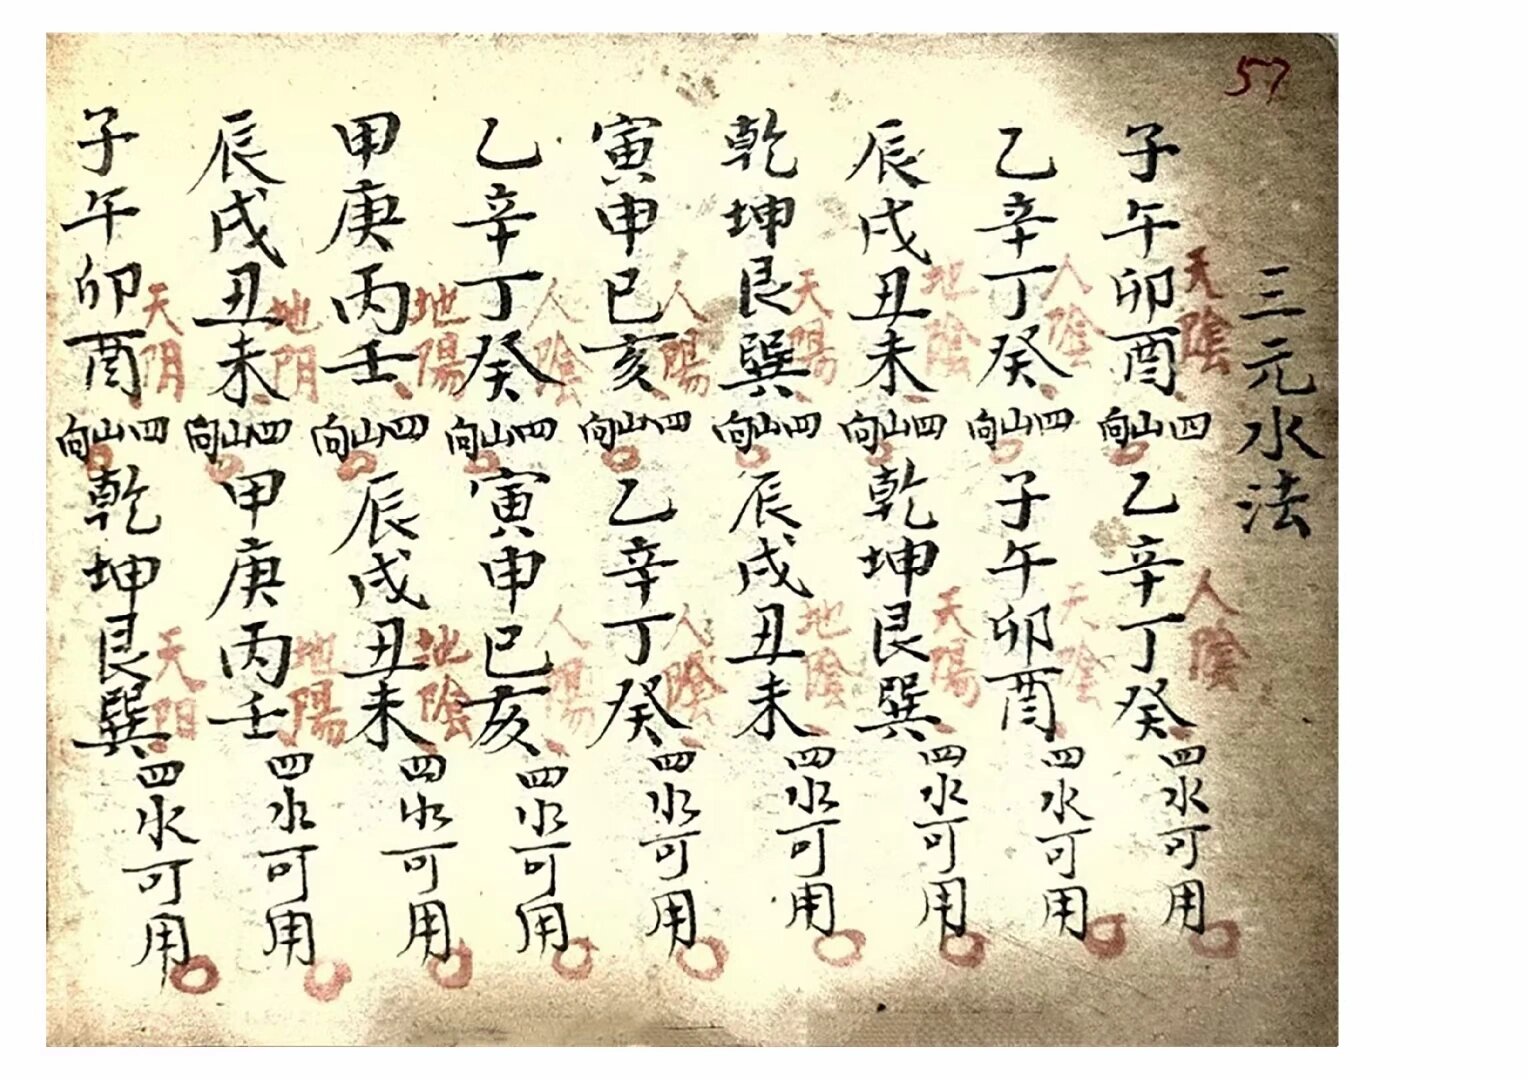 57
三元水法
子午卯酉四山向乙辛丁癸四水可用
天陰
人陰
乙辛丁癸四山向子午卯酉四水可用
人陰
天陰
辰戌丑未四山向乾坤艮巽四水可用
地陰
天陽
乾坤艮巽四山向辰戌丑未四水可用
天陽
地陰
寅申巳亥四山向乙辛丁癸四水可用
人陽
人陰
乙辛丁癸四山向寅申巳亥四水可用
人陰
人陽
甲庚丙壬四山向辰戌丑未四水可用
地陽
地陰
辰戌丑未四山向甲庚丙壬四水可用
地阴
地陽
子午卯酉四山向乾坤艮巽四水可用
天阴
天阳